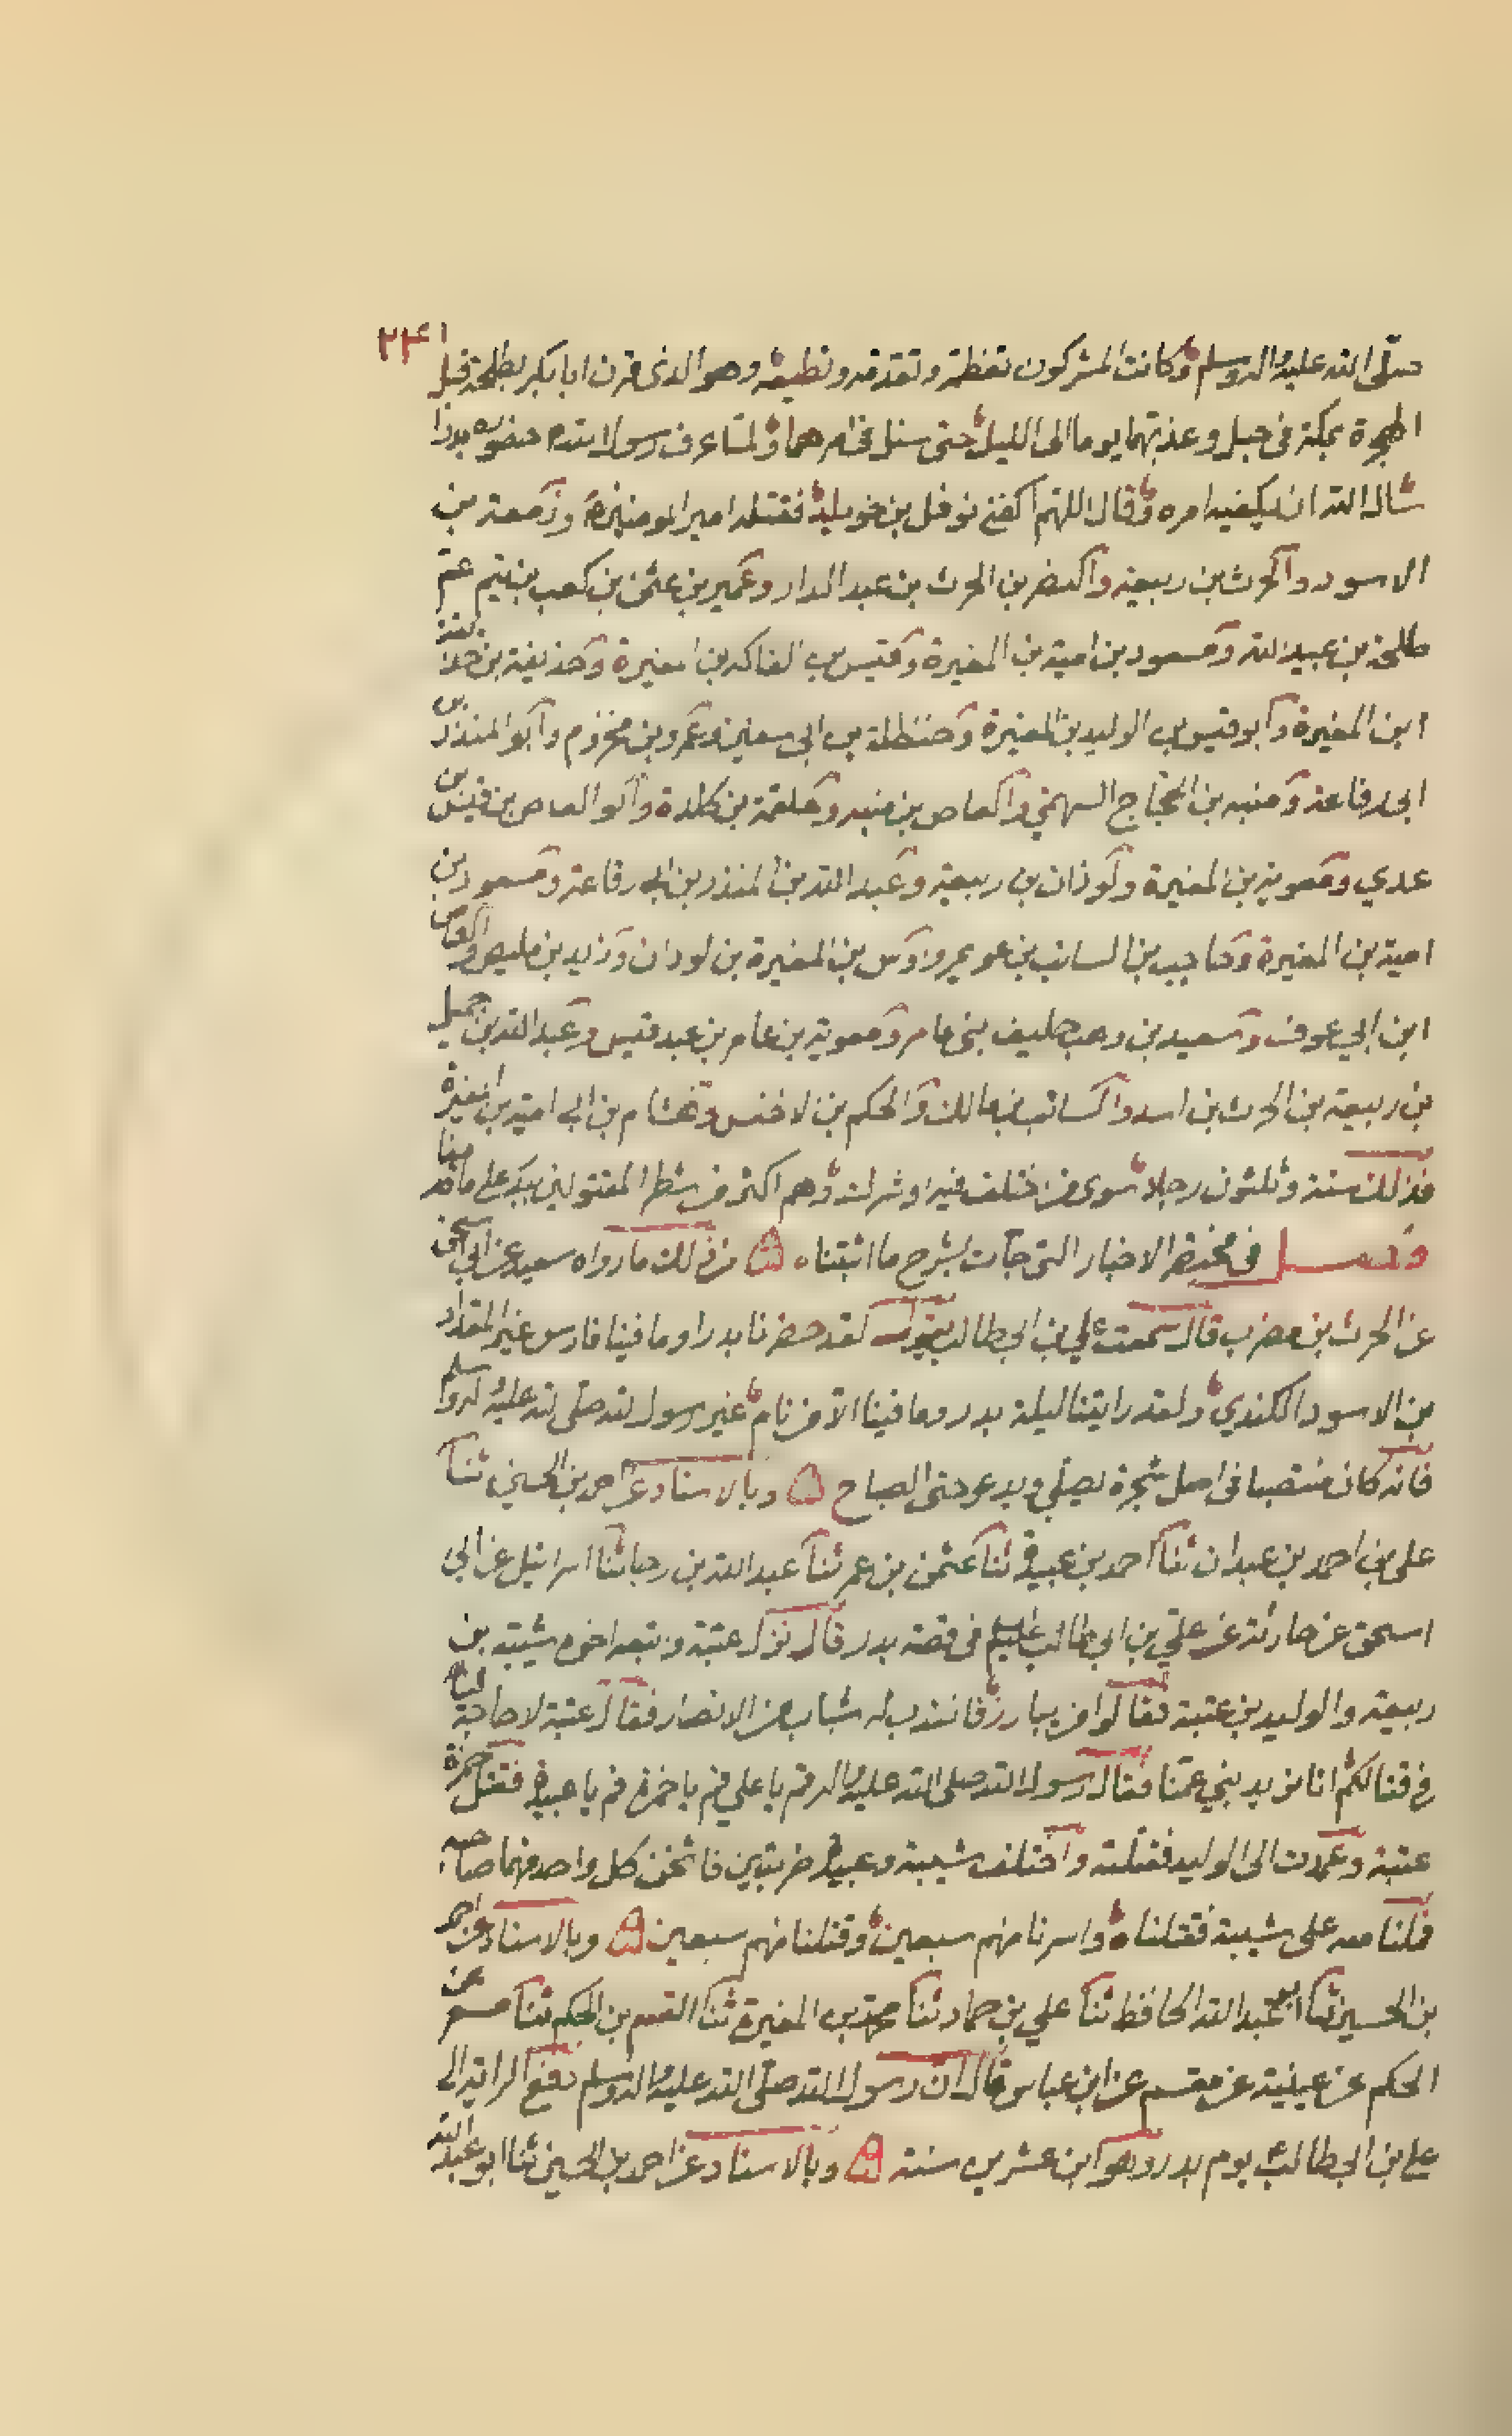 ٢٣١
صلّى الله عليه واله وسلم وكانت المشركون تعظمه وتقدمه وتطيعه وهو الذى قرن ابا بكر بطلحة قبل
الهجرة بمكة فى حبل وعذبهما يوما الى الليل حتى سئل فى امرهما ولمّا عرف رسول الله حضوره بدرا
سأل الله ان يكفيه امره وقال اللهم اكفنى نوفل بن خويلد فقتله امير المومنين وزمعة بن
الاسود والحرث بن ربيعة والنضر بن الحرث بن عبد الدار وعمير بن عثمن بن كعب بن تيم عم
طلحة بن عبيد الله ومسعود بن امية بن المغيرة وقيس بن الفاكه بن المغيرة وحذيفة بن
ابن المغيرة وابو قيس بن الوليد بن المغيرة وحنظلة بن ابى سفين وعمرو بن مخزوم وابو المنذر بن
ابى رفاعة ومنبه بن الحجاج السهمي والعاص بن منبه وعلقمة بن كلدة وابو العاص بن قيس بن
عدي ومعوية بن المغيرة ولوذان بن ربيعة وعبد الله بن المنذر بن ابى رفاعة ومسعود بن
امية بن المغيرة وحاجب بن السائب بن عويمر واوس بن المغيرة بن لوذان وزيد بن مليص والعاص
ابن ابي عوف وسعيد بن وهب حليف بنى عامر ومعوية بن عامر بن عبد قيس وعبد الله بن جميل
بن ربيعة بن الحرث بن اسد والسائب بن مالك والحكم بن الاخنس وهشام بن ابى امية بن المغيرة
فذلك ستة وثلثون رجلا سوى من اختلف فيه او شرك وهم اكثر من شطر المقتولين ببدر على ما قدمنا
فصل فى مختصر الاخبار التى جاءت بشرح ما اثبتناه فمن ذلك ما رواه سعيد عن ابي اسحق
عن الحرث بن مضرب قال سمعت علي بن ابى طالب يقول لقد حضرنا بدرا وما فينا فارس غير المقداد
بن الاسود الكندي ولقد رايتنا ليلة بدر وما فينا الا من نام غير رسول الله صلى الله عليه واله وسلم
فانه كان منتصبا فى اصل شجرة يصلي ويدعو حتى الصباح وبالاسناد عن احمد بن الحسين ثنا
على بن احمد بن عبدان ثنا احمد بن عبيد ثنا عثمن بن عمر ثنا عبد الله بن رجا ثنا اسرائيل عن ابى
اسحق عن حارثة عن علي بن ابى طالب عليه السلم فى قصة بدر قال نزل عتبة وتبعه اخوه شيبة بن
ربيعة والوليد بن عتبة فقالوا من يبارز فانتدب له شباب من الانصار فقال عتبة لا حاجة لنا
فى قتالكم انا نريد بني عمنا فقال رسول الله صلى الله عليه واله قم يا علي قم يا حمزة قم يا عبيدة فقتل حمزة
عتبة وعمدت الى الوليد فقتلته واختلف شيبة وعبيدة ضربتين فاثخن كل واحد منهما صاحبه
فملنا معه على شيبة فقتلناه واسرنا منهم سبعين وقتلنا منهم سبعين وبالاسناد عن احمد
بن الحسين ثنا ابو عبد الله الحافظ ثنا علي بن حماد ثنا محمد بن المغيرة ثنا القسم بن الحكم ثنا مسعر عن
الحكم عن عيينة عن مقسم عن ابن عباس قال ان رسول الله صلى الله عليه واله وسلم دفع الراية الى
على بن ابى طالب يوم بدر وهو ابن عشرين سنة وبالاسناد عن احمد بن الحسين ثنا ابو عبد الله